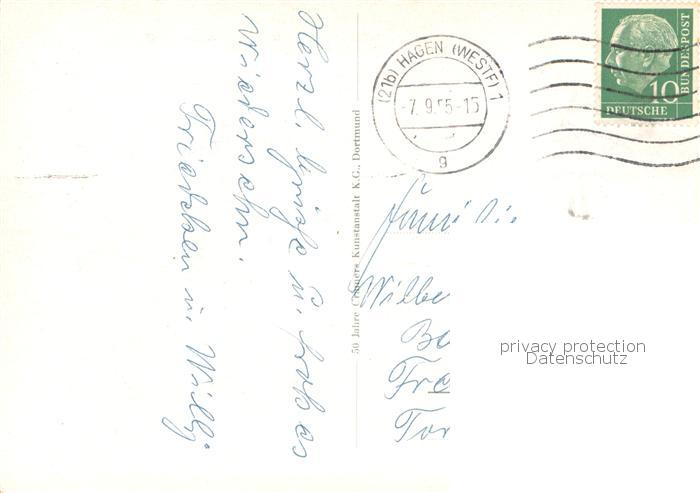 Herzl. Grüße u. frohes
Wiedersehn.
Friedchen u. Willy
50 Jahre Cramers Kunstanstalt K.G., Dortmund
(21b) HAGEN (WESTF) 1
-7.9.55-15
g
10
DEUTSCHE
BUNDESPOST
Familie
Wilhe
Bo
Fra
Tor
privacy protection
Datenschutz